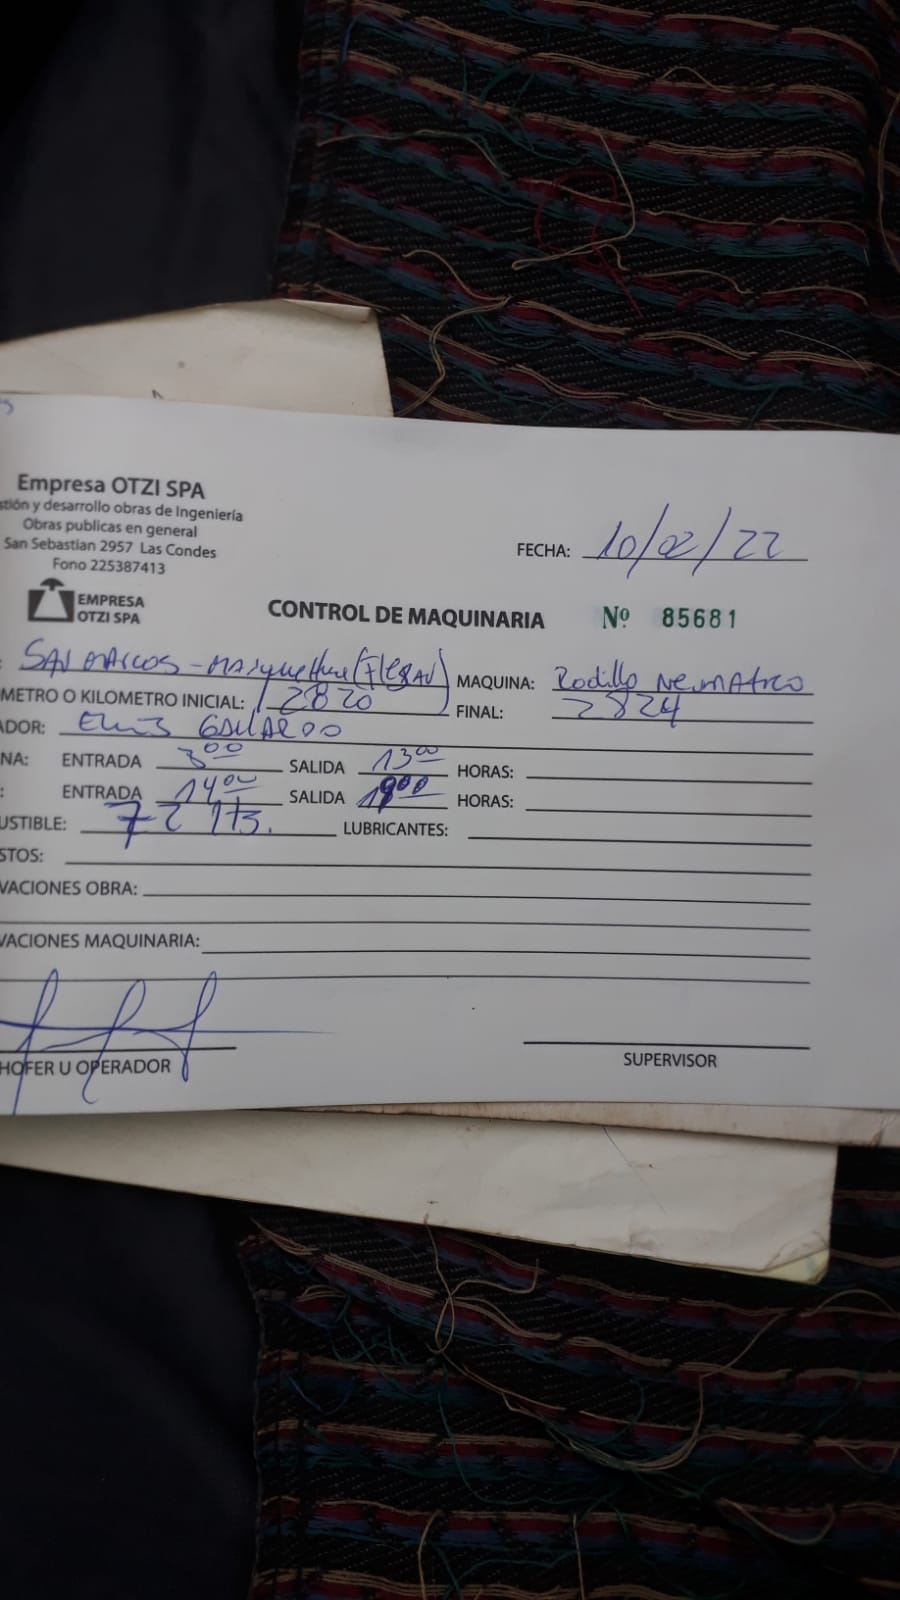 Empresa OTZI SPA
stión y desarrollo obras de Ingeniería
Obras publicas en general
San Sebastian 2957 Las Condes
Fono 225387413
EMPRESA
OTZI SPA
FECHA: 10/02/22
CONTROL DE MAQUINARIA Nº 85681
SAN MARCOS -
METRO O KILOMETRO INICIAL: 2820
MAQUINA: Rodillo Neumatico
FINAL: 2824
ADOR:
NA: ENTRADA 8:00 SALIDA 13:00 HORAS:
: ENTRADA 14:00 SALIDA 19:00 HORAS:
USTIBLE: 72 lts. LUBRICANTES:
STOS:
VACIONES OBRA:
VACIONES MAQUINARIA:
HOFER U OPERADOR
SUPERVISOR